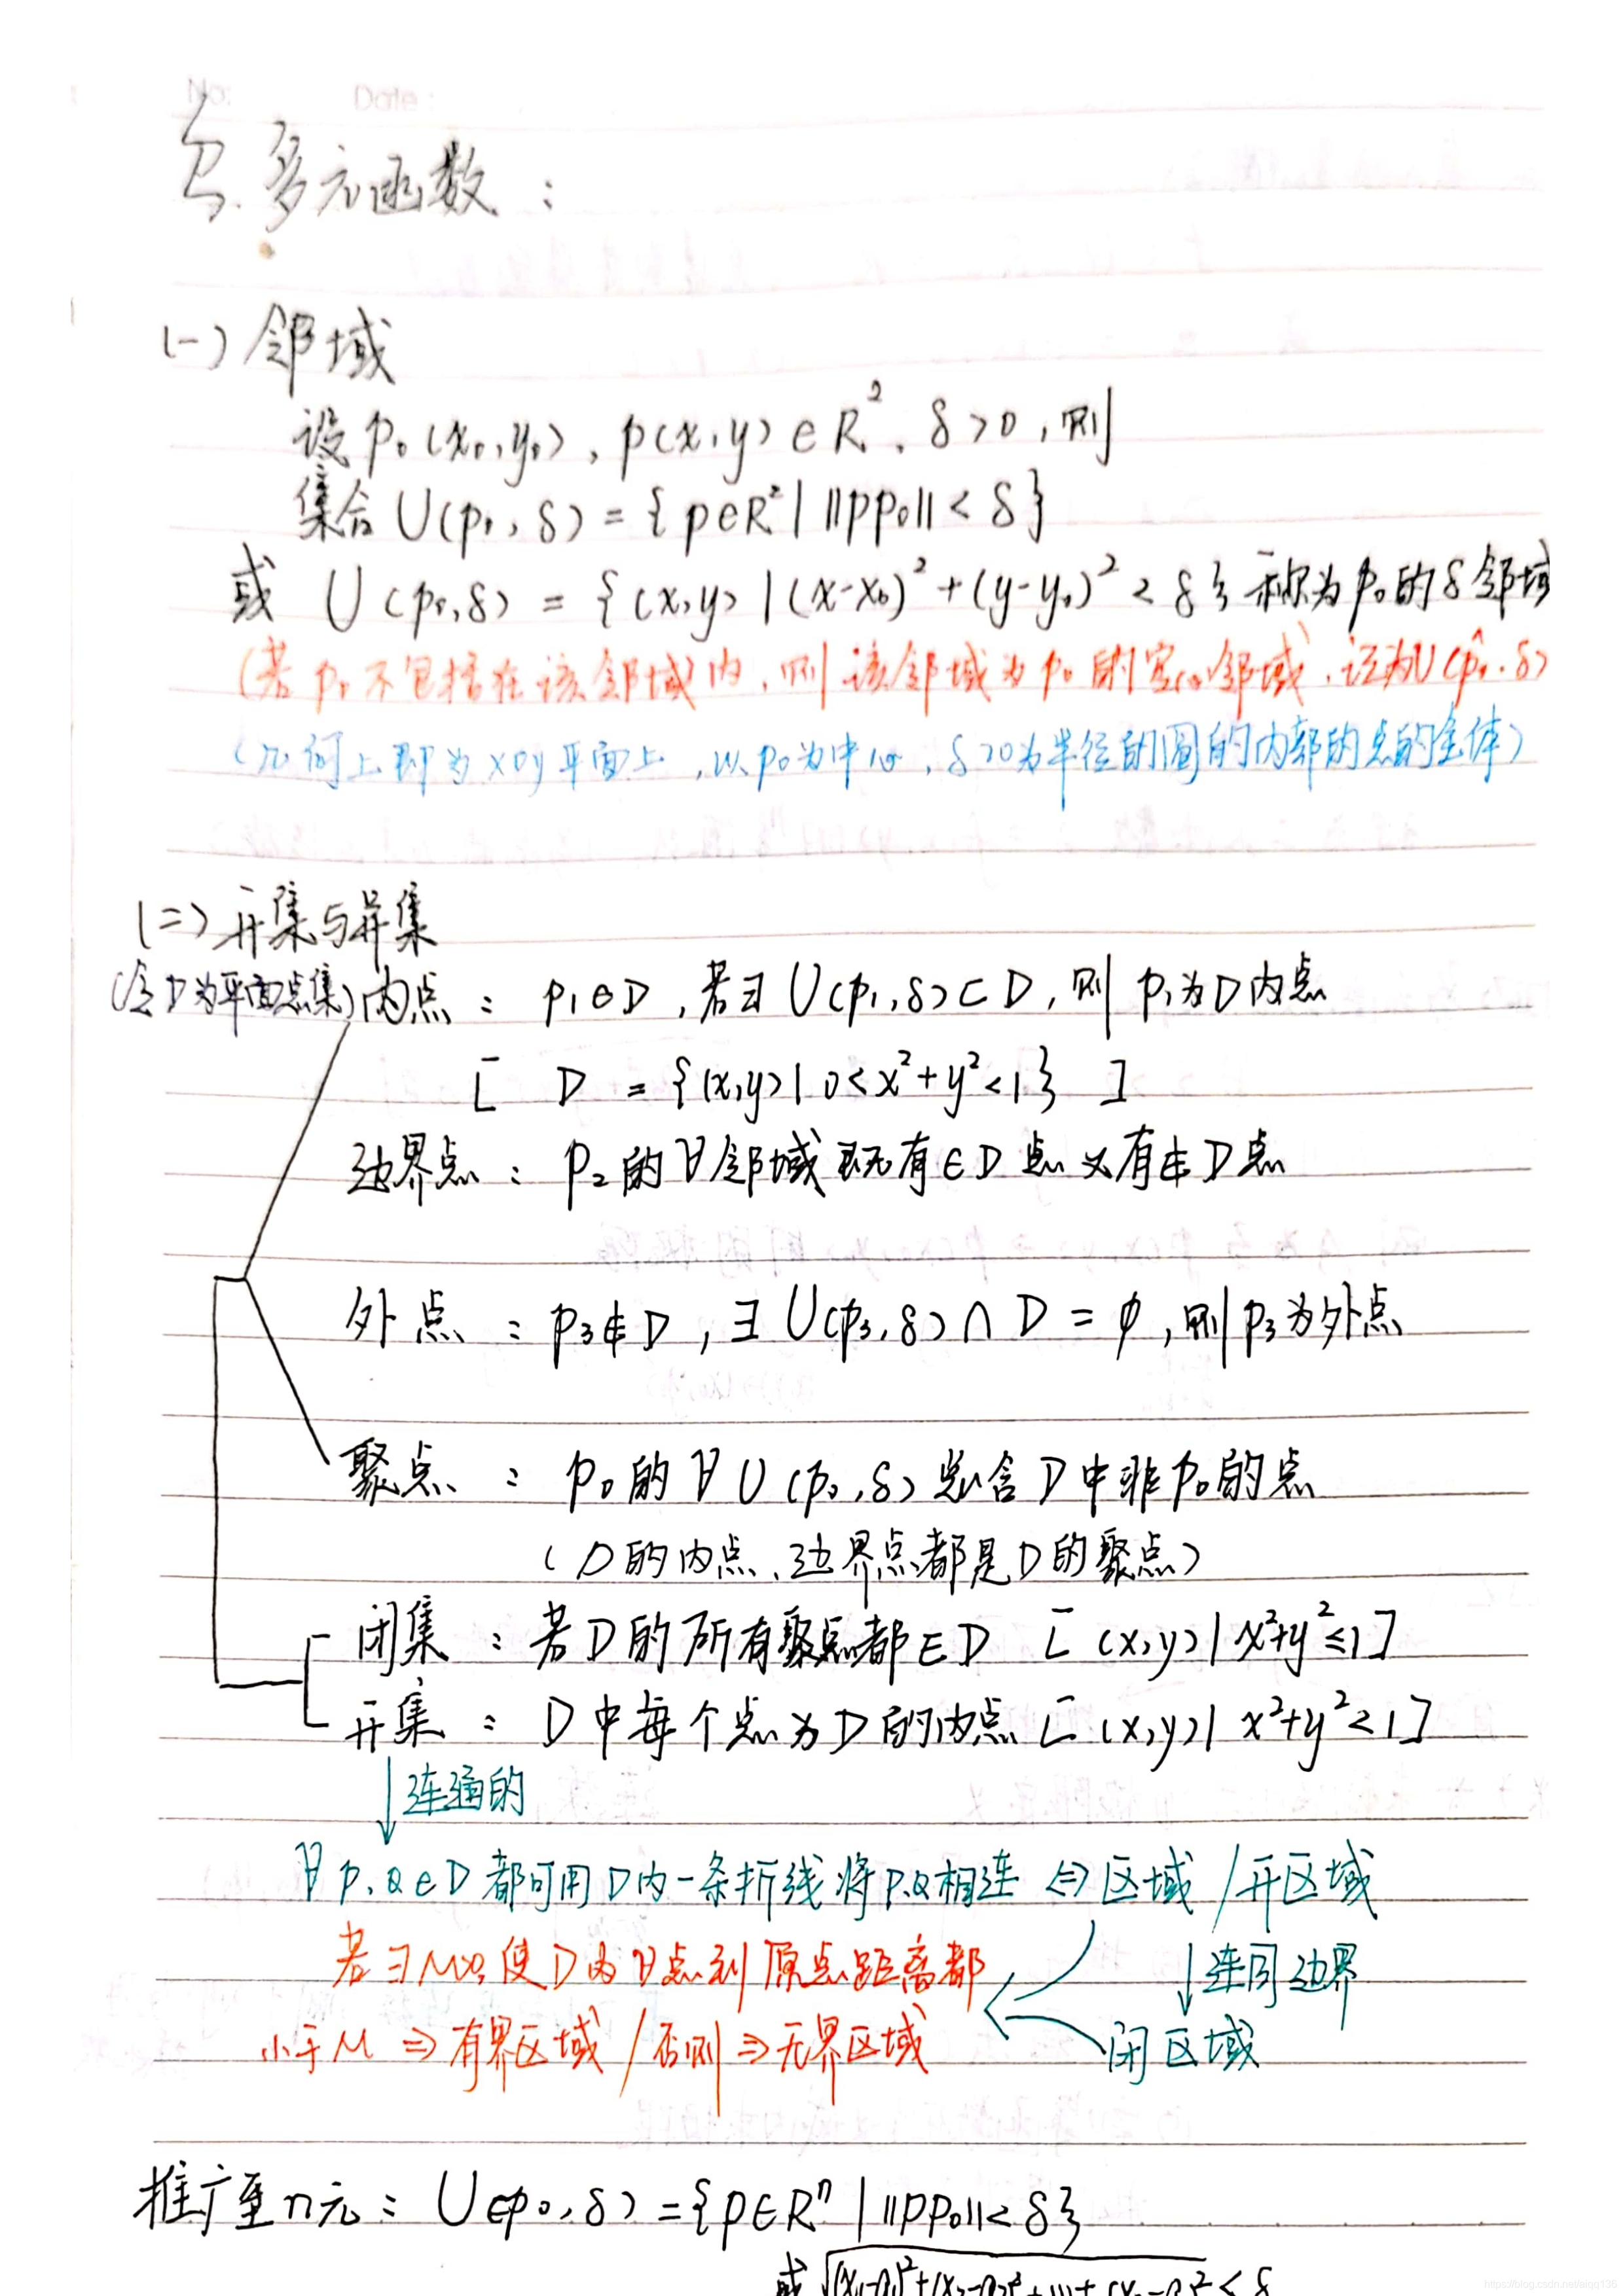 No: Date:
多元函数：
(一) 邻域
设 p₀(x₀,y₀), p(x,y)∈R², δ>0, 则
集合 U(p₀,δ) = { p∈R² | ||pp₀|| < δ }
或 U(p₀,δ) = {(x,y) | (x-x₀)²+(y-y₀)² < δ} 称为p₀的δ邻域
(若p₀不包括在该邻域内, 则该邻域为p₀的空心邻域, 记为U(p̂₀,δ)
(几何上即为xoy平面上, 以p₀为中心, δ>0为半径的圆的内部的点的全体)
(二) 开集与并集
(令D为平面点集) 内点: p₁∈D, 若∃U(p₁,δ)⊂D, 则p₁为D内点
[ D = {(x,y) | 0<x²+y²<1} ]
边界点: p₂的∀邻域既有∈D点又有∉D点
外点: p₃∉D, ∃U(p₃,δ)∩D=φ, 则p₃为外点
聚点: p₀的∀U(p₀,δ)总含D中非p₀的点
(D的内点、边界点都是D的聚点)
闭集: 若D的所有聚点都∈D [(x,y) | x²+y²≤1]
开集: D中每个点为D的内点 [(x,y) | x²+y²<1]
↓连通的
∀p,Q∈D都可用D内一条折线将p,Q相连 ⇔ 区域/开区域
若∃M>0, 使D内∀点到原点距离都 ↓连同边界
小于M ⇒ 有界区域/否则 ⇒ 无界区域 闭区域
推广至n元: U(p₀,δ) = {p∈Rⁿ | ||pp₀||<δ}
或
https://blog.csdn.net/